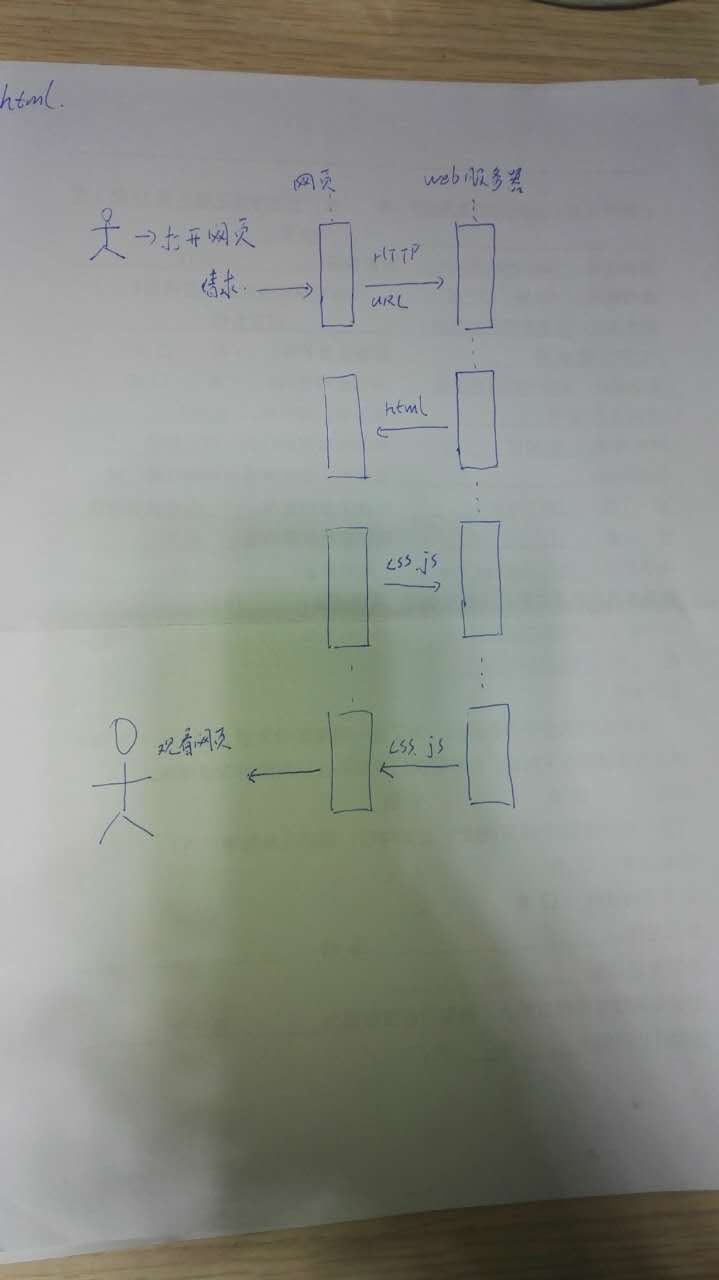 html.
网页
web服务器
→打开网页
HTTP
请求.
URL
html
css.js
观看网页
css.js